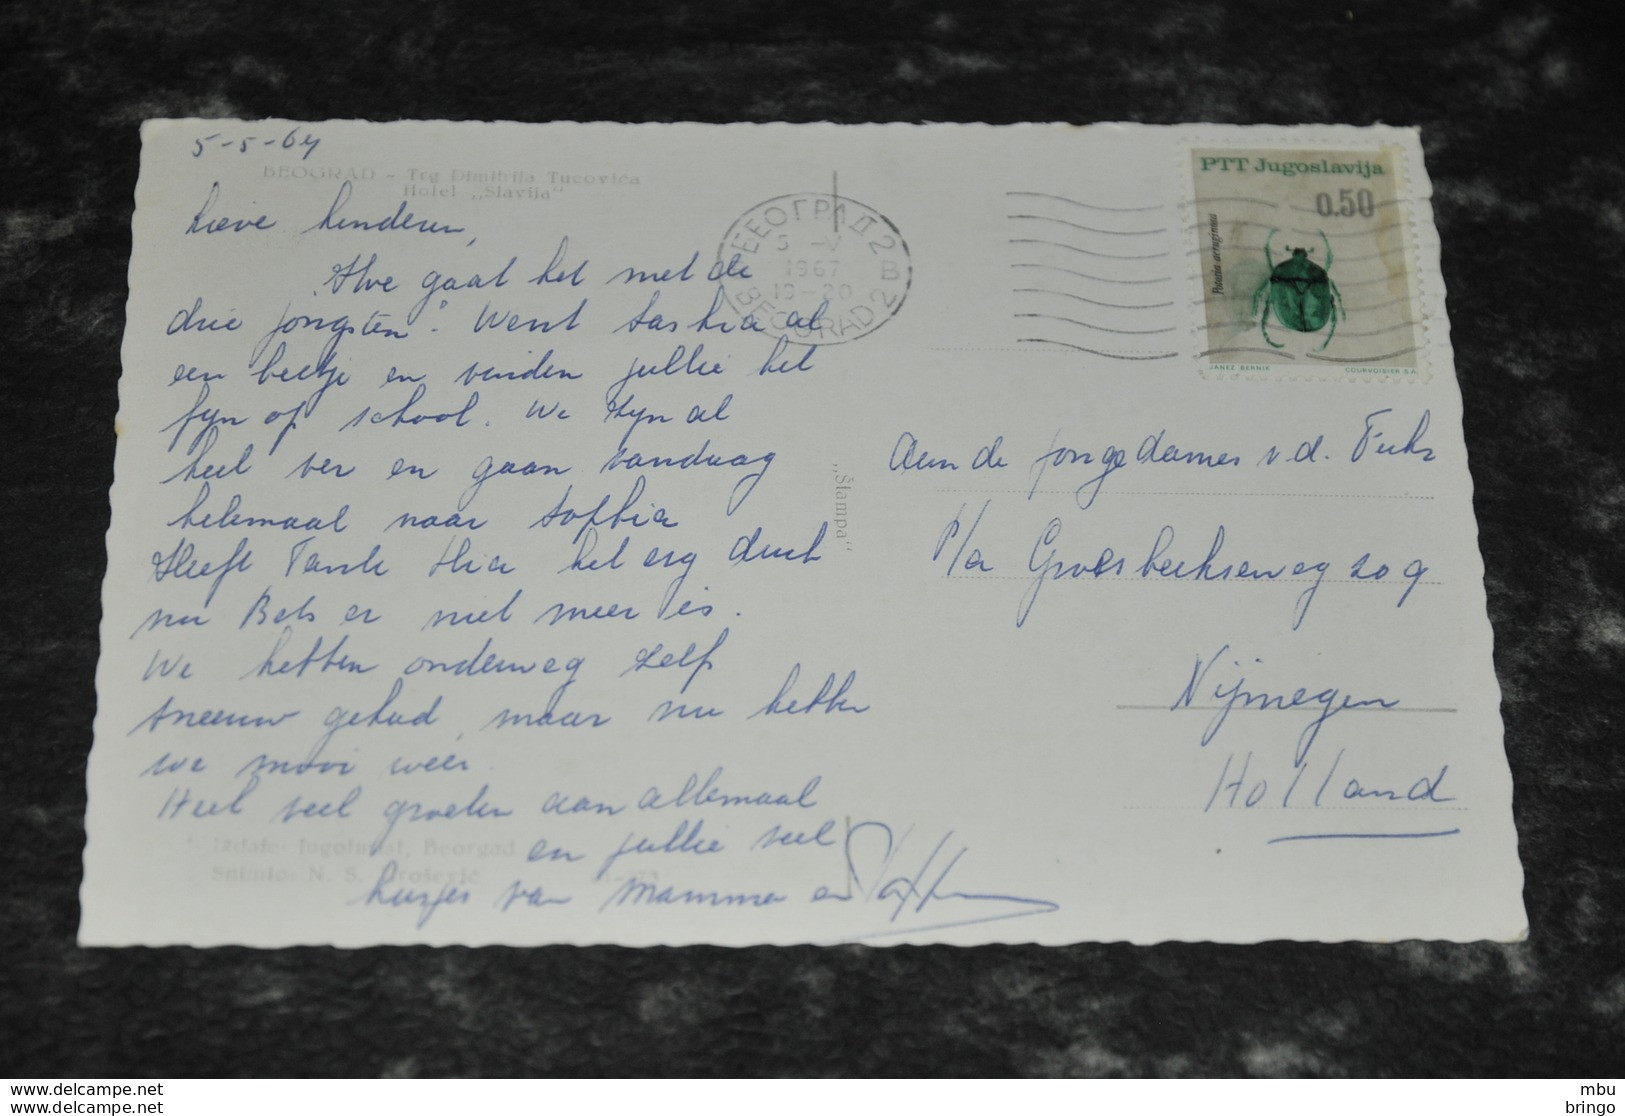 5-5-67
BEOGRAD - Trg Dimitrija Tucovića
Hotel „Slavija"
Lieve kinderen,
Hoe gaat het met de
drie jongsten? Went Saskia al
een beetje en vinden jullie het
fijn op school. We zijn al
heel ver en gaan vandaag
helemaal naar Sofhia
Heeft Tante Ria het erg druk
nu Bets er niet meer is.
We hebben onderweg zelf
sneeuw gehad, maar nu hebben
we mooi weer.
Heel veel groeten aan allemaal
en jullie veel
kusjes van Mamma en
Izdaje: Jugoturist, Beograd
Snimio: N. S.
„Štampa"
БЕОГРАД 2
5 -V
1967
В
BEOGRAD 2
PTT Jugoslavija
0.50
Potosia aeruginosa
JANEZ BERNIK COURVOISIER S.A.
Aan de jongedames v.d.
P/a Groesbeekseweg 209
Nijmegen
Holland
delcampe.net
delcampe.net
mbu
bringo